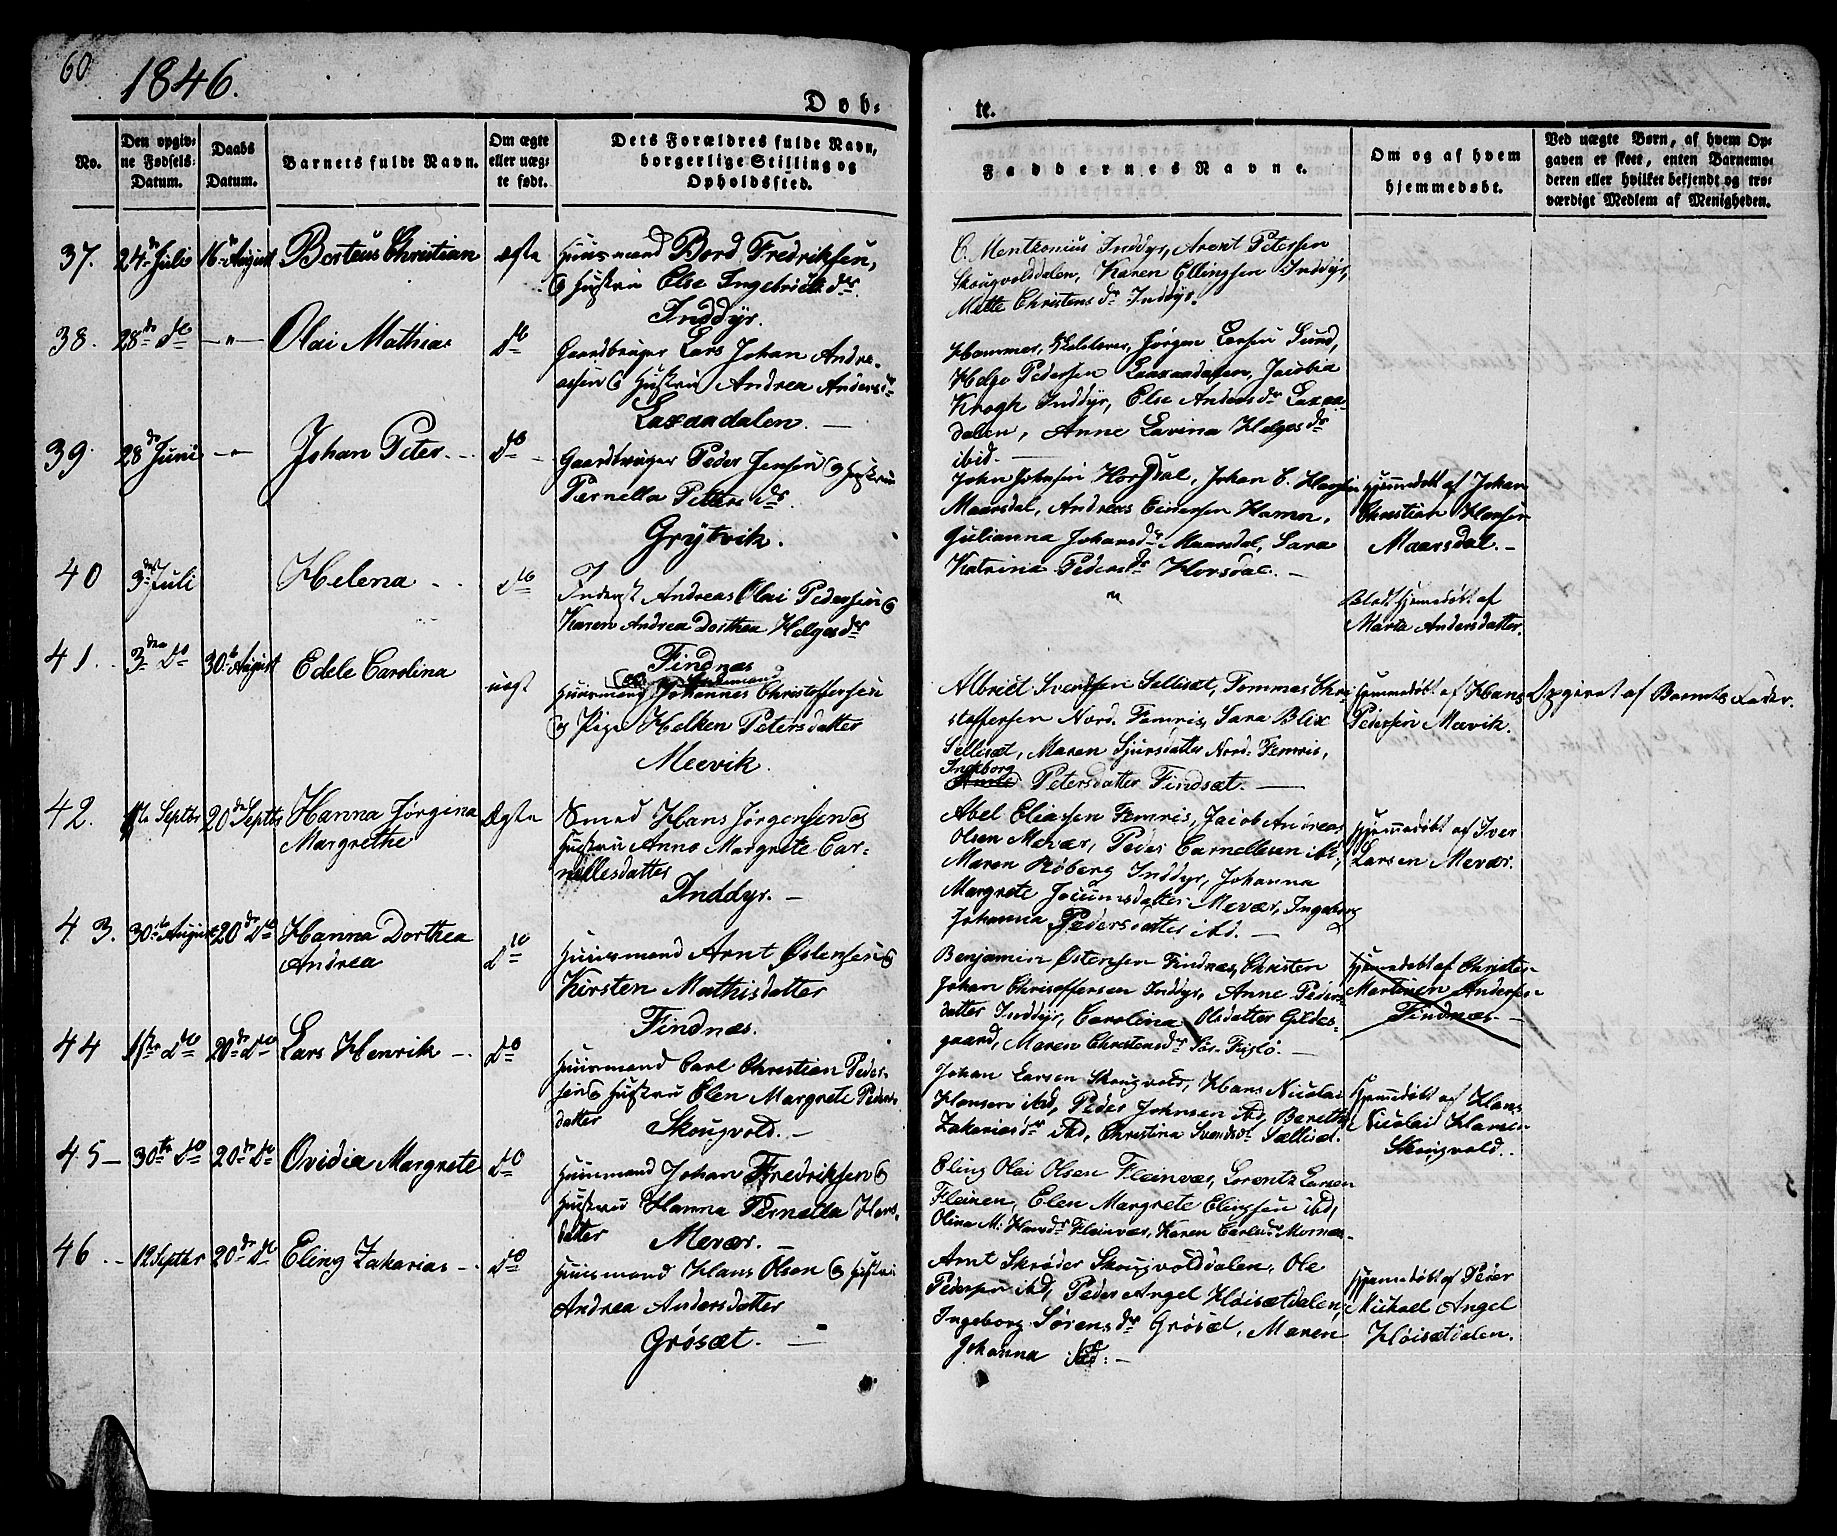 60
1846.
Døb-
te.
No.
Den opgiv-
ne Fødsels-
Datum.
Daabs
Datum.
Barnets fulde Navn.
Om ægte
eller uæg-
te født.
Dets Forældres fulde Navn,
borgerlige Stilling og
Opholdssted.
Faddernes Navne.
Om og af hvem
hjemmedøbt.
Ved uægte Børn, af hvem Op-
gaven er skeet, enten Barnemo-
deren eller hvilket bekjendt og tro-
værdigt Medlem af Menigheden.
37. 24de Juli 16de August Berteus Christian ægte
Huusmand Bord Fredriksen,
& Hustru Else Ingebrikts dr.
Inddyr.
Inddyr, Arent Petersen
Skougvolddalen, Karen Ellingsen Inddyr,
Mette Christens dr Inddyr.
38. 28de do — " — Olai Mathias do
Gaardbruger Lars Johan Andre-
assen & Hustru Andrea Anders dr
Laxaadalen. —
Hammer, Jørgen Larsen Sund,
Helge Pedersen Laxaadalen, Jacobia
Krogh Inddyr, Else Anders dr Laxaa-
dalen, Anne Lavina Helges dr
ibid. —
39. 28de Juni — " Johan Peter do
Gaardbruger Peder Jensen & Hustru
Pernella Petters dr
Grytvik.
John Johnsen Horsdal, Johan C. Hansen
Maarsdal, Andreas Hamn,
Julianna Johans dr Maarsdal, Sara
Katrina Peders dr Horsdal. —
Hjemmedøbt af Johan
Christian Hansen
Maarsdal. —
40 3die Juli Helena do
Inderst Andreas Olai Pedersen &
Karen Andrea Dorthea Helges dr
Findnæs
"
Blot hjemedøbt af
Marta Andersdatter.
41. 3die do 30te August Edele Carolina uægt
Huusmand Johannes Christoffersen
& Pige Helken Petersdatter
Meevik.
Albrict Svendsen Sellisæt, Tommas Chri-
stoffersen Nord. Femris, Sara Blix
Sellisæt, Maren Sjursdatter Nord. Femris,
Ingeborg
Petersdatter Findsæt. —
Hjemmedøbt af Hans
Pedersen Meevik.
Opgivet af Barnets Fader.
42. 1te Septbr 20de Septbr Hanna Jørgina
Margrethe
Ægte
Smed Hans Jørgensen &
Hustru Anne Margrete Cor-
nellesdatter
Inddyr. —
Abel Eliassen Femris, Jacob Andreas
Olsen Mevær, Peder Carnellesen ibd,
Maren Røberg Inddyr, Johanna
Margrete Jocumsdatter Mevær, Ingeborg
Johanna Pedersdatter ibd. —
Hjemmedøbt af Iver
Larsen Mevær.
43. 30te August 20de do Hanna Dorthea
Andrea
do
Huusmand Arnt Østensen &
Kirsten Mathisdatter
Findnæs.
Benjamin Østensen Findnæs, Christen
Johan Christoffersen Inddyr, Anne Peders-
datter Inddyr, Carolina Olsdatter Gildes-
gaard, Maren Christens dr Sør. Fuglø. —
Hjemedøbt af Christen
Martinen Andersen
Findnæs. —
44 1ste do 20de do Lars Henrik do
Huusmand Carl Christian Peder-
sen & Hustru Elen Margrete Peders-
datter
Skougvold. —
Johan Larsen Skougvold, Hans Nicolai
Hansen ibd, Peder Johnsen ibd, Beretha
Zakarias dr ibd, Christina Svends dr Sællisæt.
Hjemmedøbt af Hans
Nicolai Hansen
Skougvold.
45 — 30te do 20de do Ovidia Margrete do
Huusmand Johan Fredriksen &
Hustru Hanna Pernella Hans-
datter
Mevær. —
Eling Olai Olsen Fleinvær, Lorentz Larsen
Fleinen, Elen Margrete Elingsen ibd,
Olina M. Hans dr Fleinvær, Karen
46 12 Septbr 20de do Eling Zakarias do
Huusmand Hans Olsen & Hustru
Andrea Andersdatter
Grøsæt. —
Arnt Skrøder Skougvolddalen, Ole
Pedersen ibd, Peder Angel Høisætdalen,
Ingeborg Sørens dr Grøsæt, Maren
Johanna ibd. —
Hjemmedøbt af Peder
Michael Angel
Høisætdalen.